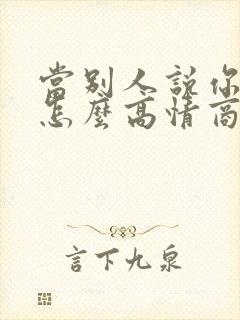 當別人說你
怎麼高情商
言下九泉